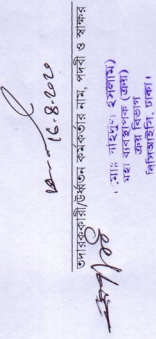 ১৬.৪.২০২০
তদারককারী/উর্ধ্বতন কর্মকর্তার নাম, পদবী ও স্বাক্ষর
(মোঃ সাইদুল ইসলাম)
মহা ব্যবস্থাপক (ক্রয়)
ক্রয় বিভাগ
বিসিআইসি, ঢাকা।